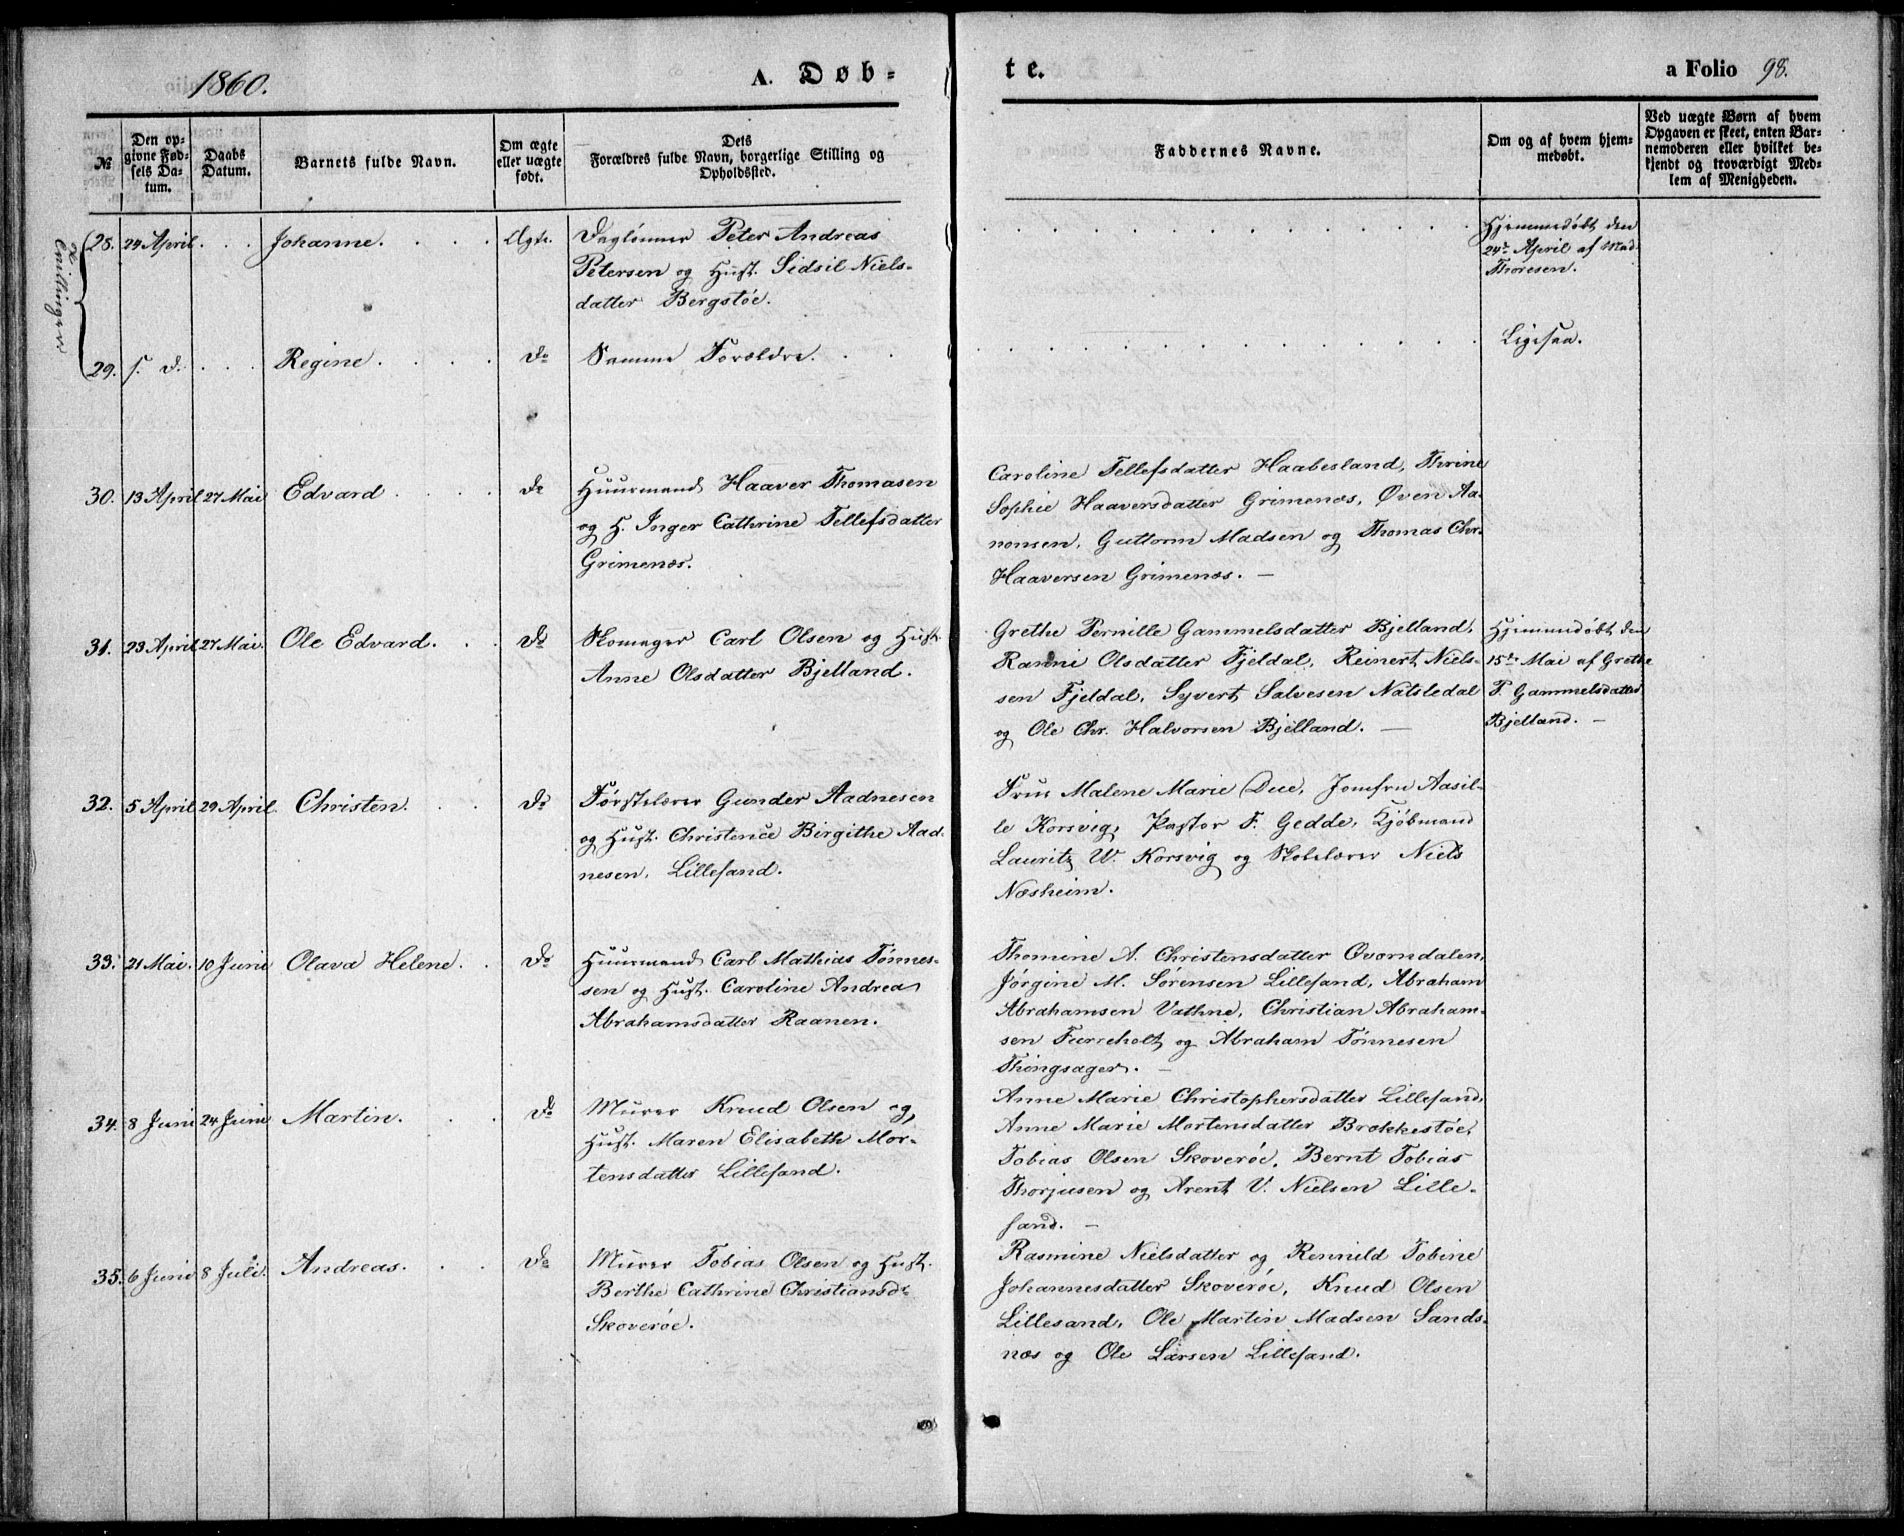 1860.
A. Døb-
te.
a Folio 98.
№
Den op-
givne Fød-
sels Da-
tum.
Daabs
Datum.
Barnets fulde Navn.
Om ægte
eller uægte
født.
Dets
Forældres fulde Navn, borgerlige Stilling og
Opholdssted.
Faddernes Navne.
Om og af hvem hjem-
medøbt.
Ved uægte Børn af hvem
Opgaven er skeet, enten Bar-
nemoderen eller hvilket be-
kjendt og troværdigt Med-
lem af Menigheden.
Tvillinger
28. 24 April . . . Johanne. . . . . Ægte.
Daglønner Peter Andreas
Petersen og Hust. Sidsil Niels-
datter Bergstøe.
Hjemmedøbt den
24de April af Mad.
Thoresen.
29. s. d. . . . Regine . . . . Do
Samme Forældre. . .
Ligesaa.
30. 13 April 27 Mai Edvard . . . . Do
Huusmand Haaver Thomasen
og H. Inger Cathrine Tellefsdatter
Grimenæs.
Caroline Tellefsdatter Haabesland, Thrine
Sophie Haaversdatter Grimenæs, Øven Aa-
nonsen, Guttorm Madsen og Thomas Chr.
Haaversen Grimenæs. —
31. 23 April 27 Mai. Ole Edvard. . . Do
Skomager Carl Olsen og Hust.
Anne Olsdatter Bjelland.
Grethe Pernille Gammelsdatter Bjelland,
Ranni Olsdatter Fjeldal, Reinert Niels-
sen Fjeldal, Syvert Salvesen Natsledal
og Ole Chr. Halvorsen Bjelland. —
Hjemmedøbt den
15de Mai af Grethe
P. Gammelsdatter
Bjelland. —
32. 5 April 29 April. Christen. . . Do
Førstelærer Gunder Aadnesen
og Hust. Christence Birgithe Aad-
nesen, Lillesand.
Frue Malene Marie Due, Jomfru Aasil-
le Korsvig, Pastor F. Gedde, Kjøbmand
Lauritz W. Korsvig og Skolelærer Niels
Næsheim.
33. 21 Mai. 10 Juni Olava Helene. . Do
Huusmand Carl Mathias Tønnes-
sen og Hust. Caroline Andrea
Abrahamsdatter Raanen.
Thomine A. Christensdatter Qvarndalen,
Jørgine M. Sørensen Lillesand, Abraham
Abrahamsen Vathne, Christian Abraham-
sen Furreholt og Abraham Tønnesen
Thingsager. —
34. 8 Juni 24 Juni Martin. . . . Do
Murer Knud Olsen og
Hust. Maren Elisabeth Mor-
tensdatter Lillesand.
Anne Marie Christophersdatter Lillesand,
Anne Marie Mortensdatter Brækkestøe,
Tobias Olsen Skoverøe, Bernt Tobias
Thorjusen og Arent V. Nielsen Lille-
sand. —
35. 6 Juni 8 Juli. Andreas. . . . Do
Murer Tobias Olsen og Hust.
Berthe Cathrine Christiansdr
Skoverøe.
Rasmine Nielsdatter og Rennild Tobine
Johannesdatter Skoverøe, Knud Olsen
Lillesand, Ole Martin Madsen Sands-
næs og Ole Larsen Lillesand.